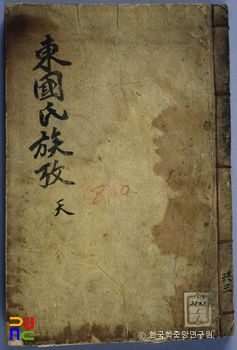 東國氏族攷
天
共三
© 한국학중앙연구원